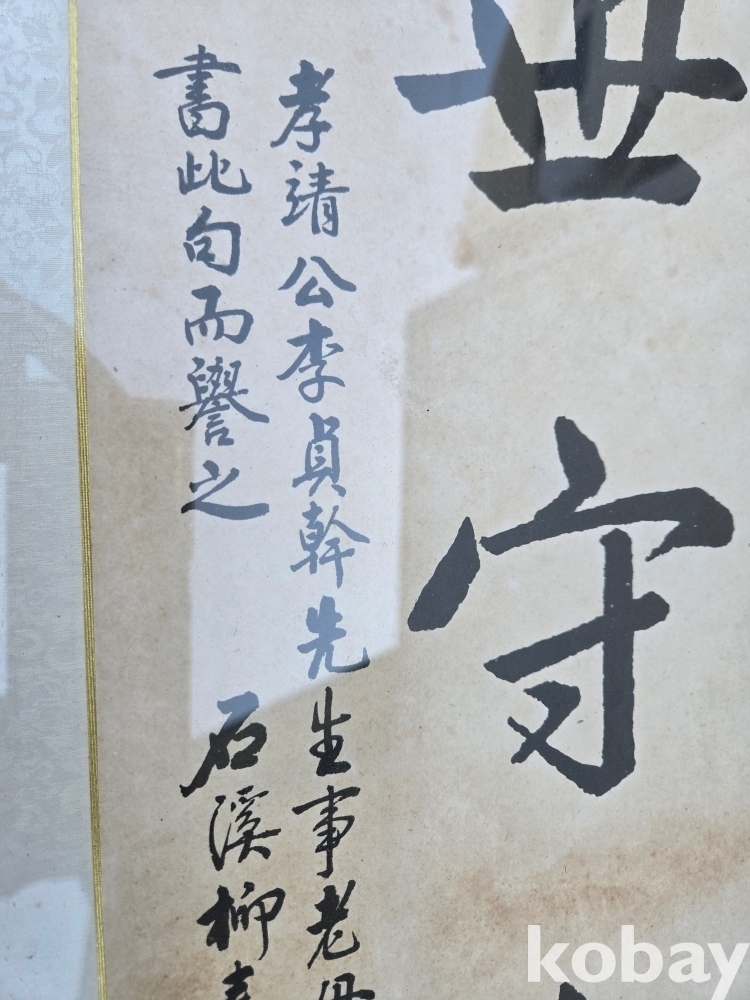 世守
孝靖公李貞幹先生事老母
書此句而譽之 石溪柳
kobay